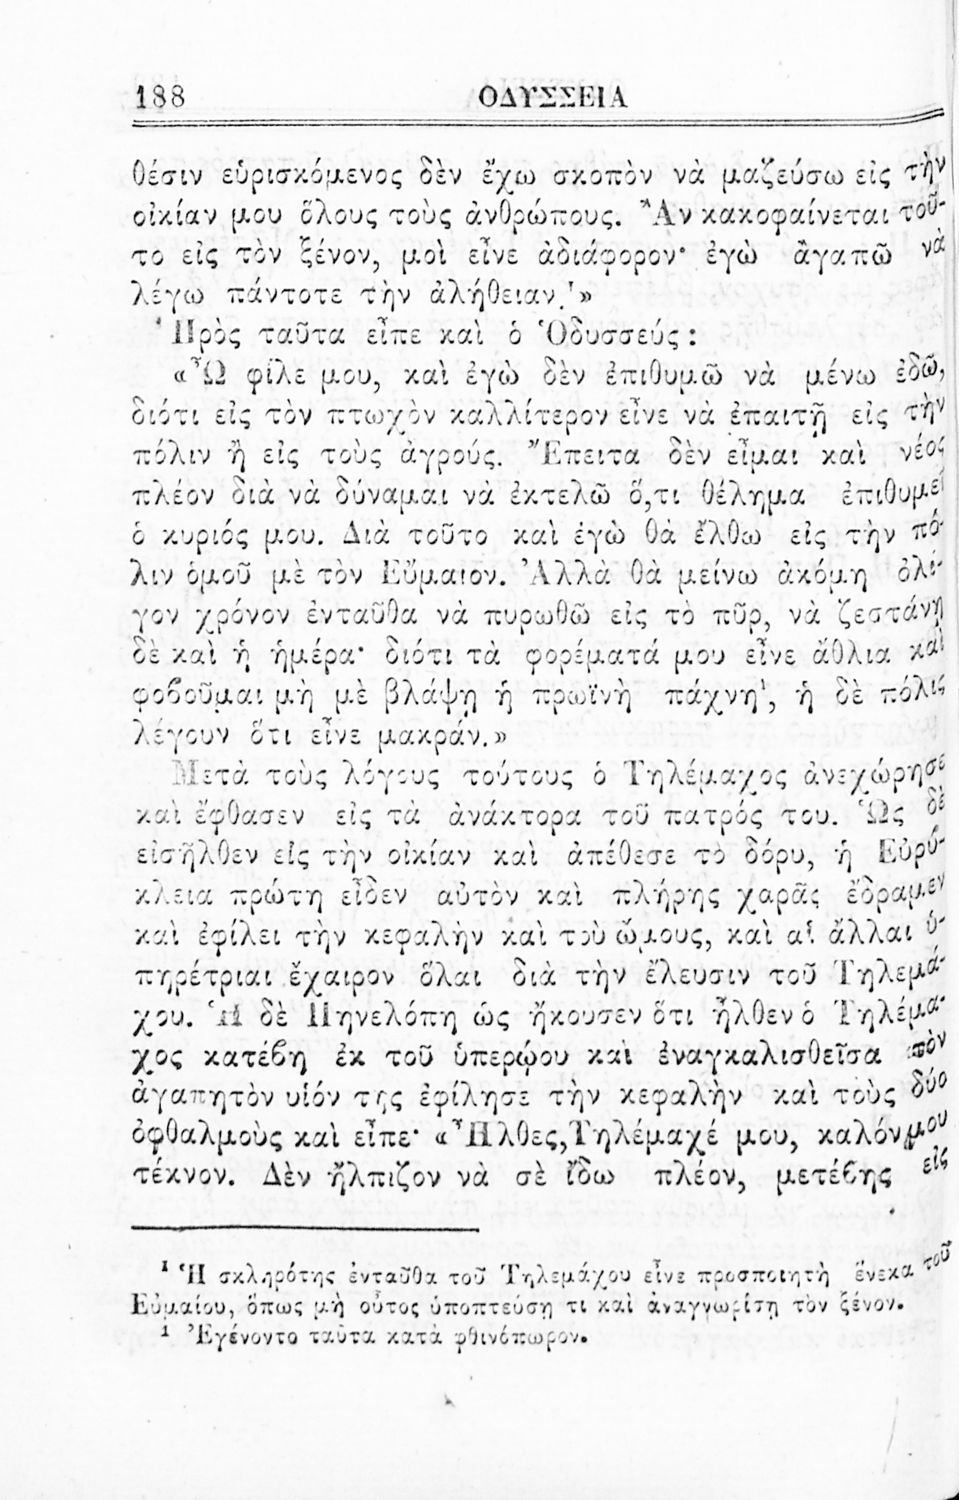 188 ΟΔΥΣΣΕΙΑ
θέσιν εὑρισκόμενος δὲν ἔχω σκοπὸν νὰ μαζεύσω εἰς τὴν
οἰκίαν μου ὅλους τοὺς ἀνθρώπους. Ἂν κακοφαίνεται τοῦ-
το εἰς τὸν ξένον, μοὶ εἶνε ἀδιάφορον· ἐγὼ ἀγαπῶ νὰ
λέγω πάντοτε τὴν ἀλήθειαν.¹»
Πρὸς ταῦτα εἶπε καὶ ὁ Ὀδυσσεύς:
«Ὦ φίλε μου, καὶ ἐγὼ δὲν ἐπιθυμῶ νὰ μένω ἐδῶ,
διότι εἰς τὸν πτωχὸν καλλίτερον εἶνε νὰ ἐπαιτῇ εἰς τὴν
πόλιν ἢ εἰς τοὺς ἀγρούς. Ἔπειτα δὲν εἶμαι καὶ νέος
πλέον διὰ νὰ δύναμαι νὰ ἐκτελῶ ὅ,τι θέλημα ἐπιθυμεῖ
ὁ κυριός μου. Διὰ τοῦτο καὶ ἐγὼ θὰ ἔλθω εἰς τὴν πό-
λιν ὁμοῦ μὲ τὸν Εὔμαιον. Ἀλλὰ θὰ μείνω ἀκόμη ὀλί-
γον χρόνον ἐνταῦθα νὰ πυρωθῶ εἰς τὸ πῦρ, νὰ ζεστάνῃ
δὲ καὶ ἡ ἡμέρα· διότι τὰ φορέματά μου εἶνε ἄθλια καὶ
φοβοῦμαι μὴ μὲ βλάψῃ ἡ πρωϊνὴ πάχνη¹, ἡ δὲ πόλις
λέγουν ὅτι εἶνε μακράν.»
Μετὰ τοὺς λόγους τούτους ὁ Τηλέμαχος ἀνεχώρησε
καὶ ἔφθασεν εἰς τὰ ἀνάκτορα τοῦ πατρός του. Ὡς δὲ
εἰσῆλθεν εἰς τὴν οἰκίαν καὶ ἀπέθεσε τὸ δόρυ, ἡ Εὐρύ-
κλεια πρώτη εἶδεν αὐτὸν καὶ πλήρης χαρᾶς ἔδραμεν
καὶ ἐφίλει τὴν κεφαλὴν καὶ τοὺ ὤμους, καὶ αἱ ἄλλαι ὑ-
πηρέτριαι ἔχαιρον ὅλαι διὰ τὴν ἔλευσιν τοῦ Τηλεμά-
χου. Ἡ δὲ Πηνελόπη ὡς ἤκουσεν ὅτι ἦλθεν ὁ Τηλέμα-
χος κατέβη ἐκ τοῦ ὑπερῴου καὶ ἐναγκαλισθεῖσα τὸν
ἀγαπητὸν υἱόν της ἐφίλησε τὴν κεφαλὴν καὶ τοὺς δύο
ὀφθαλμοὺς καὶ εἶπε· «Ἦλθες,Τηλέμαχέ μου, καλόν μου
τέκνον. Δὲν ἤλπιζον νὰ σὲ ἴδω πλέον, μετέβης εἰς
¹ Ἡ σκληρότης ἐνταῦθα τοῦ Τηλεμάχου εἶνε προσποιητὴ ἕνεκα τοῦ
Εὐμαίου, ὅπως μὴ οὗτος ὑποπτεύσῃ τι καὶ ἀναγνωρίσῃ τὸν ξένον.
¹ Ἐγένοντο ταῦτα κατὰ φθινόπωρον.